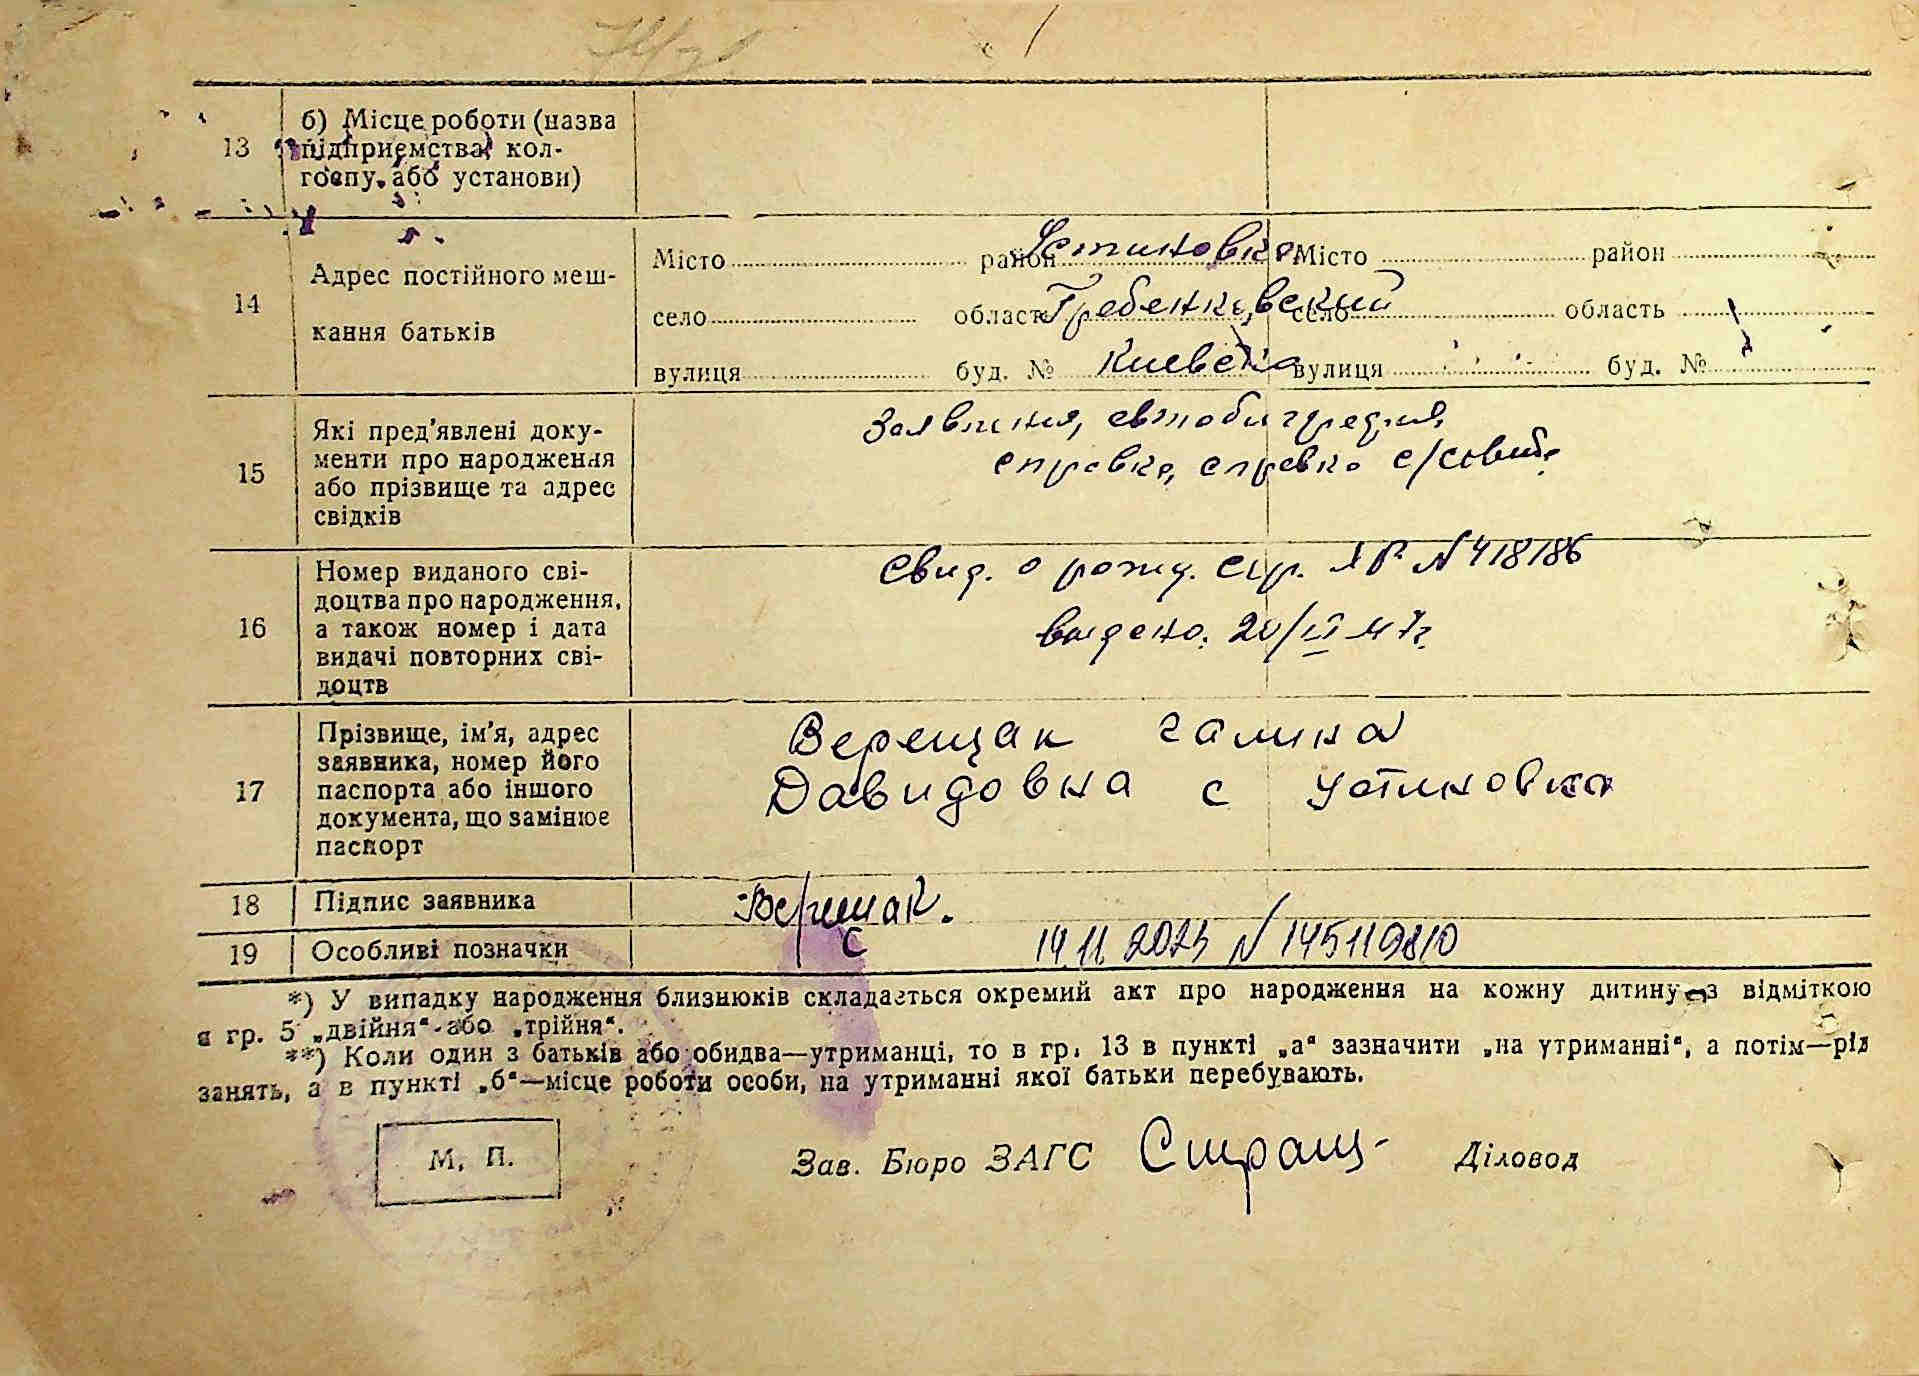 13
б) Місце роботи (назва
підприємства, кол-
госпу, або установи)
14
Адрес постійного меш-
кання батьків
Місто район Устиновка Місто район
село область Гребенковский село область
вулиця буд. № Киевска вулиця буд. №
15
Які пред'явлені доку-
менти про народження
або прізвище та адрес
свідків
Заявления, автобиография,
справка, справка с/совета
16
Номер виданого сві-
доцтва про народження,
а також номер і дата
видачі повторних сві-
доцтв
Свид. о рожд. сер. № 418186
выдано. 20/ 47г.
17
Прізвище, ім'я, адрес
заявника, номер його
паспорта або іншого
документа, що замінює
паспорт
Верещак Галина
Давидовна с Устиновка
18
Підпис заявника
Верещак.
19
Особливі позначки
С 14.11.2023 N 145119810
*) У випадку народження близнюків складається окремий акт про народження на кожну дитину з відміткою
в гр. 5 „двійня“ або „трійня“.
**) Коли один з батьків або обидва—утриманці, то в гр. 13 в пункті „а“ зазначити „на утриманні“, а потім—рід
занять, а в пункті „б“—місце роботи особи, на утриманні якої батьки перебувають.
М. П.
Зав. Бюро ЗАГС Діловод